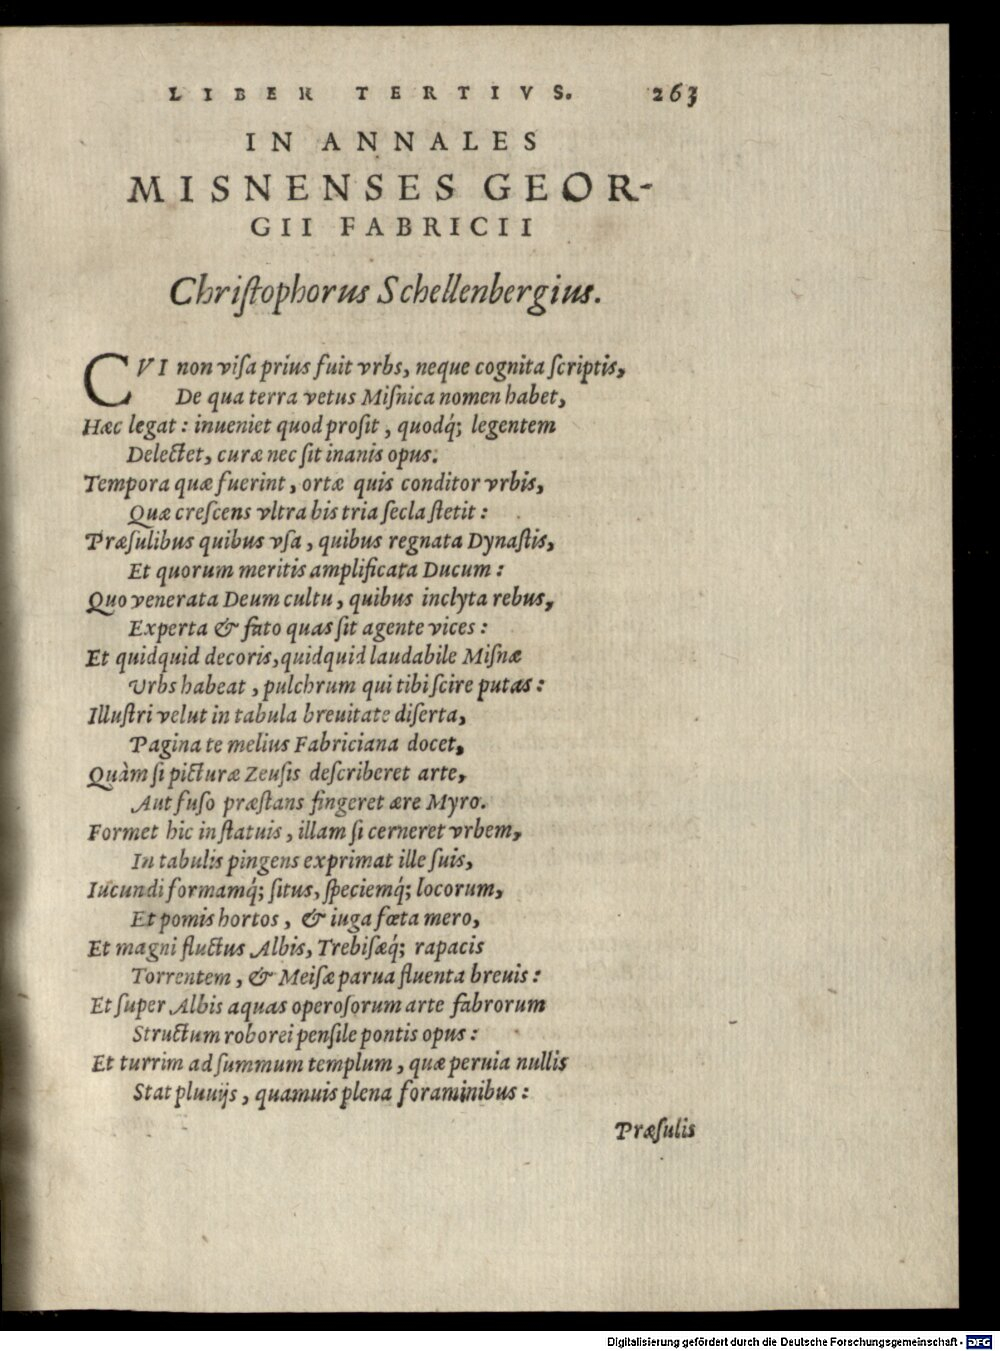 LIBER TERTIVS. 263
IN ANNALES
MISNENSES GEOR-
GII FABRICII
Chriſtophorus Schellenbergius.
CVI non viſa priùs fuit vrbs, neque cognita ſcriptis,
De qua terra vetus Miſnica nomen habet,
Hæc legat: inueniet quod proſit, quodq́; legentem
Delectet, curæ nec ſit inanis opus.
Tempora quæ fuerint, ortæ quis conditor vrbis,
Quæ creſcens vltra bis tria ſecla ſtetit:
Præſulibus quibus vſa, quibus regnata Dynaſtis,
Et quorum meritis amplificata Ducum:
Quo venerata Deum cultu, quibus inclyta rebus,
Experta & fato quas ſit agente vices:
Et quidquid decoris, quidquid laudabile Miſnæ
Vrbs habeat, pulchrum qui tibi ſcire putas:
Illuſtri velut in tabula breuitate diſerta,
Pagina te melius Fabriciana docet,
Quàm ſi picturæ Zeuſis deſcriberet arte,
Aut fuſo præſtans fingeret ære Myro.
Formet hic in ſtatuis, illam ſi cerneret vrbem,
In tabulis pingens exprimat ille ſuis,
Iucundi formamq́; ſitus, ſpeciemq́; locorum,
Et pomis hortos, & iuga fœta mero,
Et magni fluctus Albis, Trebiſæq́; rapacis
Torrentem, & Meiſæ parua fluenta breuis:
Et ſuper Albis aquas operoſorum arte fabrorum
Structum roborei penſile pontis opus:
Et turrim ad ſummum templum, quæ peruia nullis
Stat pluuijs, quamuis plena foraminibus:
Præſulis
Digitalisierung gefördert durch die Deutsche Forschungsgemeinschaft - DFG